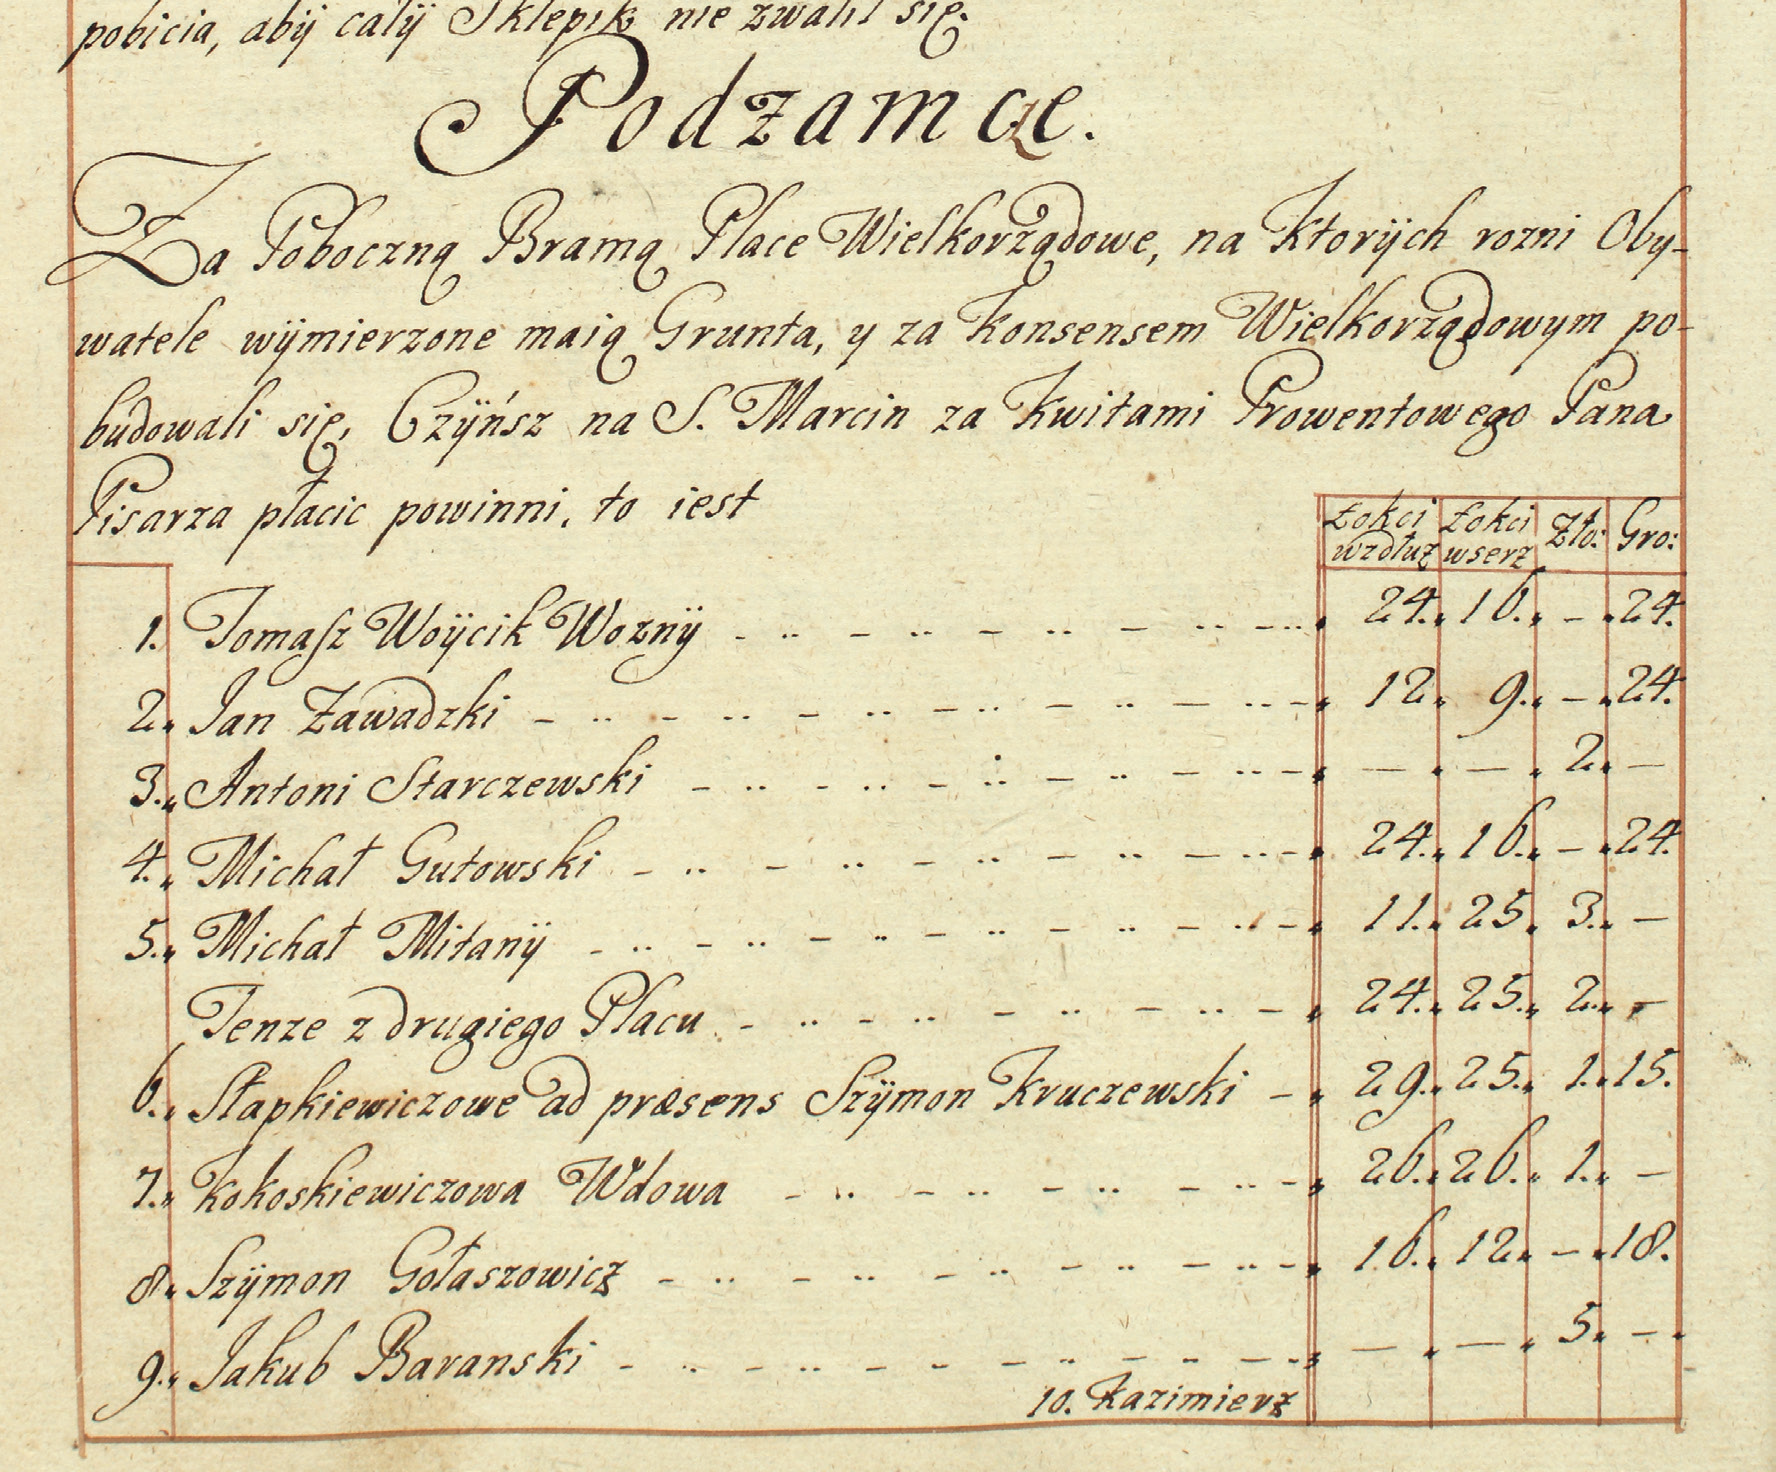 pobicia, abÿ całÿ Sklepik nie zwalił się.
Podzamcze.
Za Poboczną Bramą Place Wielkorządowe, na Ktorÿch rozni Oby-
watele wÿmierzone maią Grunta, y za Konsensem Wielkorządowym po-
budowali się, Czÿńsz na S. Marcin za Kwitami Prowentowego Pana
Pisarza płacic powinni, to iest
Łokci wzdłuż Łokci wserz Zło: Gro:
1. Tomasz Woÿcik Woznÿ 24. 16. – 24.
2. Jan Zawadzki 12. 9. – 24.
3. Antoni Starczewski – – 2. –
4. Michał Gutowski 24. 16. – 24.
5. Michał Mitanÿ 11. 25. 3. –
Tenze z drugiego Placu 24. 25. 2. –
6. Słapkiewiczowe ad præsens Szÿmon Kruczewski 29. 25. 1. 15.
7. Kokoskiewiczowa Wdowa 26. 26. 1. –
8. Szÿmon Gołaszowicz 16. 12. – 18.
9. Jakub Baranski – – 5. –
10. Kazimierz